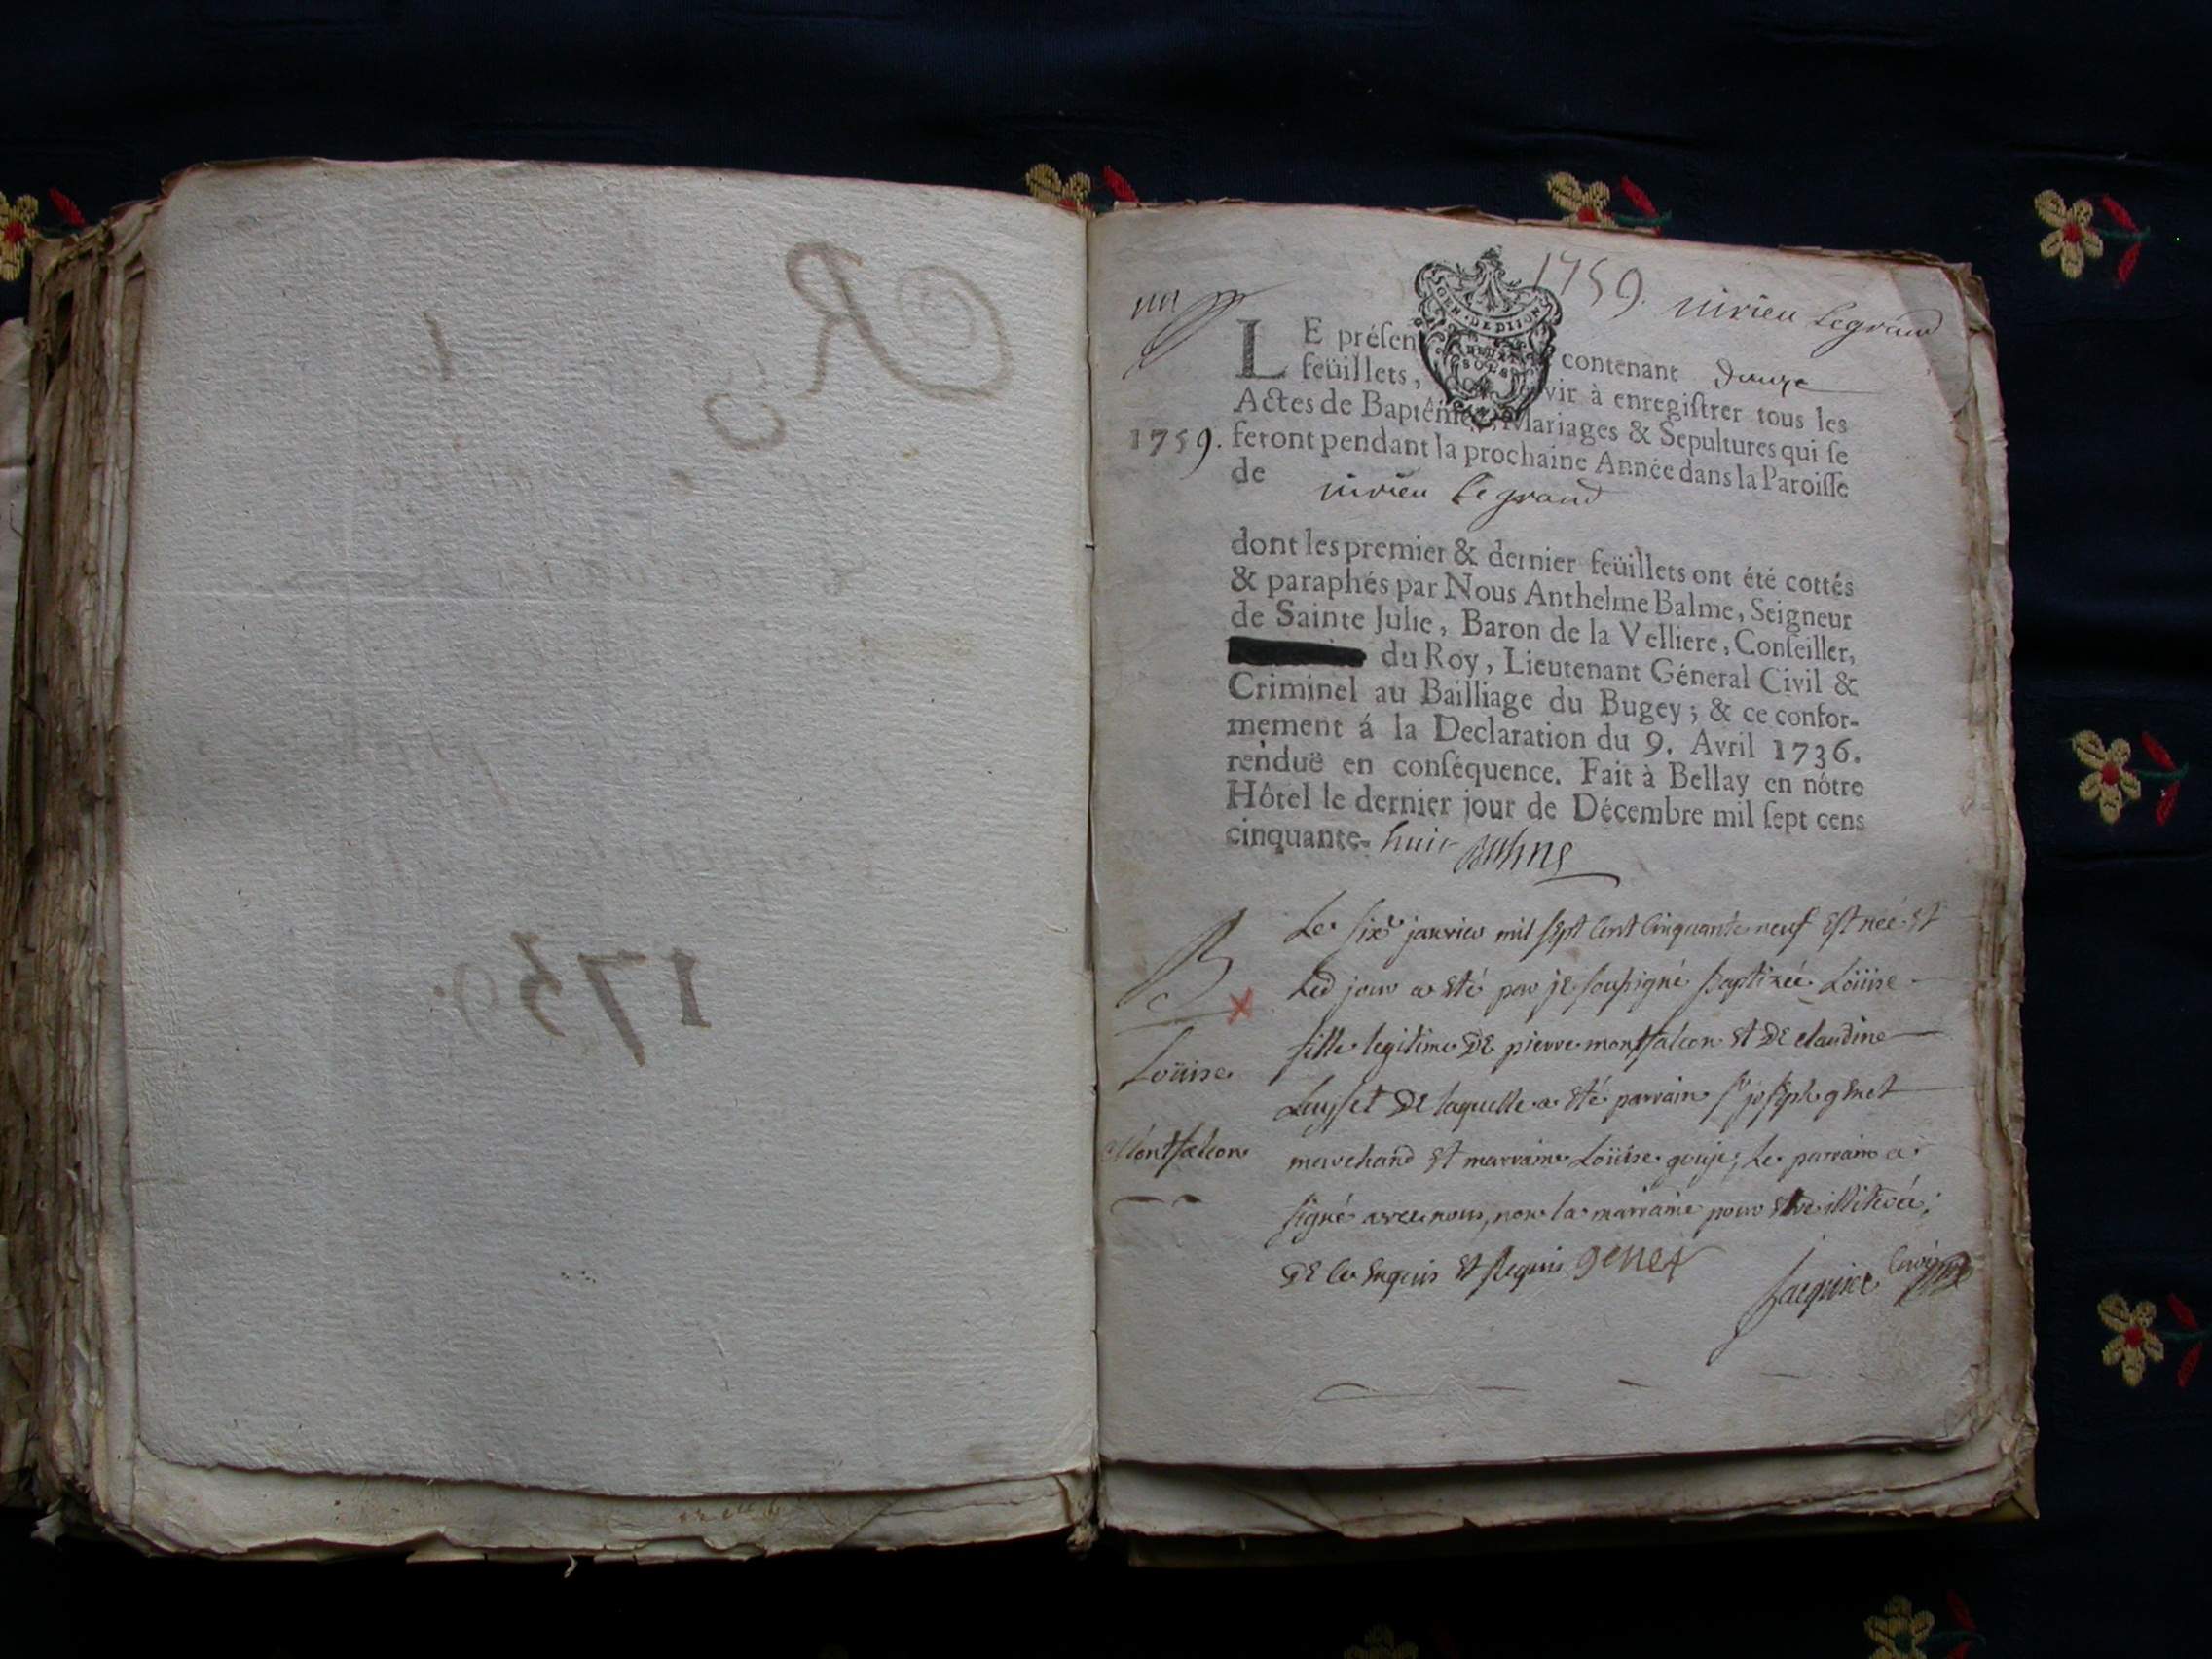 1759. virieu Legrand
un
GEN · DE DIJON
LE présen contenant douze
feüillets, vir à enregiſtrer tous les
Actes de Baptêmes, Mariages & Sepultures qui ſe
1759. feront pendant la prochaine Année dans la Paroiſſe
de virieu Le grand
dont les premier & dernier feüillets ont été cottés
& paraphés par Nous Anthelme Balme, Seigneur
de Sainte Julie, Baron de la Velliere, Conſeiller,
du Roy, Lieutenant Géneral Civil &
Criminel au Bailliage du Bugey; & ce confor-
mement á la Declaration du 9. Avril 1736.
renduë en conſéquence. Fait à Bellay en nôtre
Hôtel le dernier jour de Décembre mil ſept cens
cinquante- huit Balme
B
Loüise
Montfalcon
Le six.e janvier mil sept Cent Cinquante neuf Est neé Et
Led jour a Eté par je soussigné Baptizeé Loüise
fille legitime DE pierre montfalcon Et DE claudine
Luyset DE laquelle a Eté parrain Sr joseph genet
marchand Et marraine Loüise gouje; Le parrain a
signé avec nous, non la marraine pour Etre illitereé;
DE ce Enquis Et Requis genet
Jacquier Curé
1759.